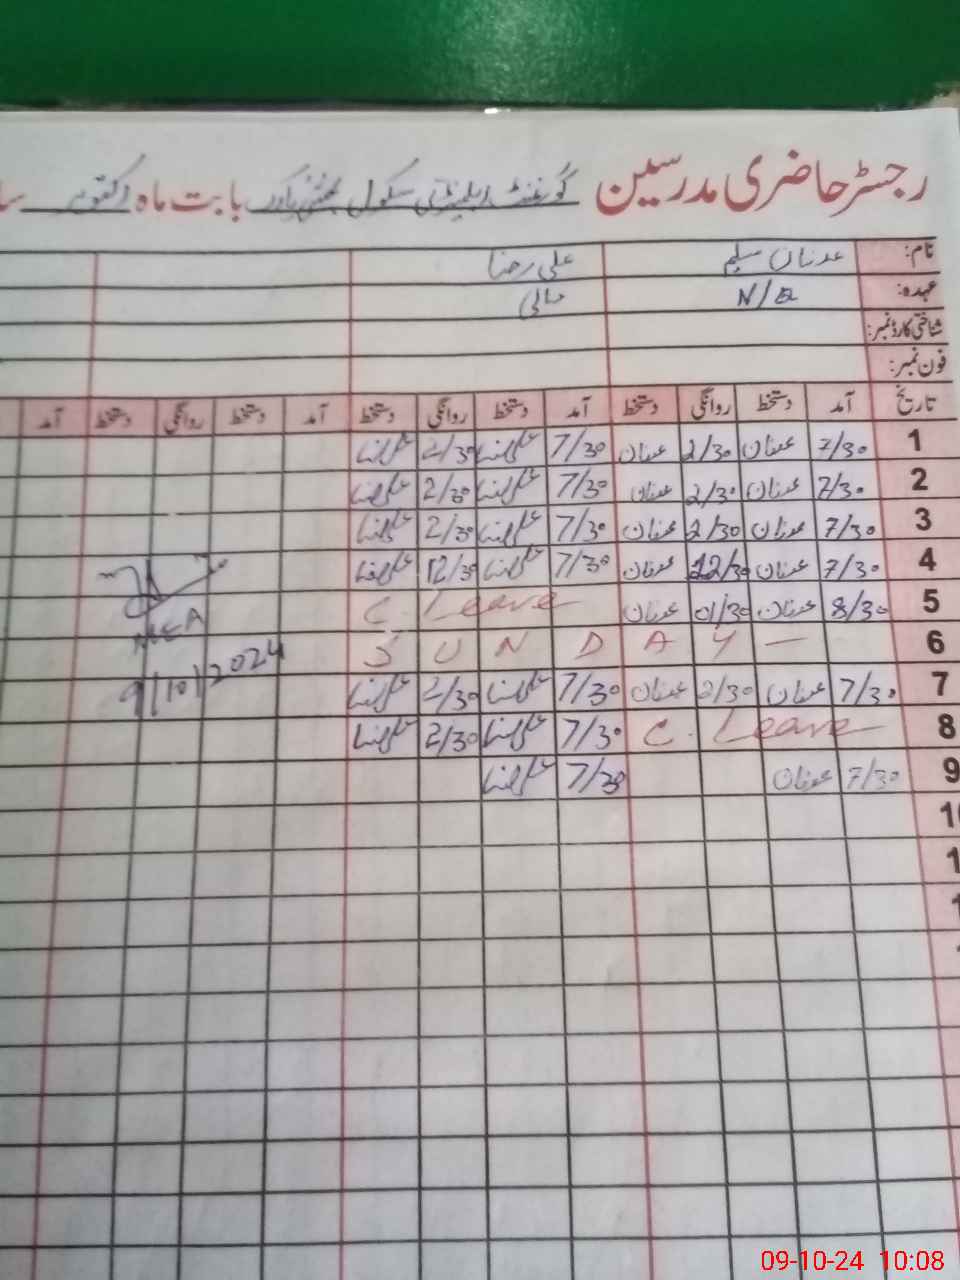 رجسٹر حاضری مدرسین گورنمنٹ ایلیمنٹری سکول بابت ماہ اکتوبر
نام: عدنان سلیم علی رضا
عہدہ: N/Q مالی
شناختی کارڈ نمبر:
فون نمبر:
تاریخ آمد دستخط روانگی دستخط آمد دستخط روانگی دستخط آمد دستخط روانگی دستخط آمد
1 7/30 عدنان 2/30 عدنان 7/30 علی رضا 2/30 علی رضا
2 7/30 عدنان 2/30 عدنان 7/30 علی رضا 2/30 علی رضا
3 7/30 عدنان 2/30 عدنان 7/30 علی رضا 2/30 علی رضا
4 7/30 عدنان 12/30 عدنان 7/30 علی رضا 12/30 علی رضا
5 8/30 عدنان 01/30 عدنان C. Leave
6 S U N D A Y —
7 7/30 عدنان 2/30 عدنان 7/30 علی رضا 2/30 علی رضا
8 C. Leave 7/30 علی رضا 2/30 علی رضا
9 7/30 عدنان 7/30 علی رضا
MEA
9/10/2024
09-10-24 10:08